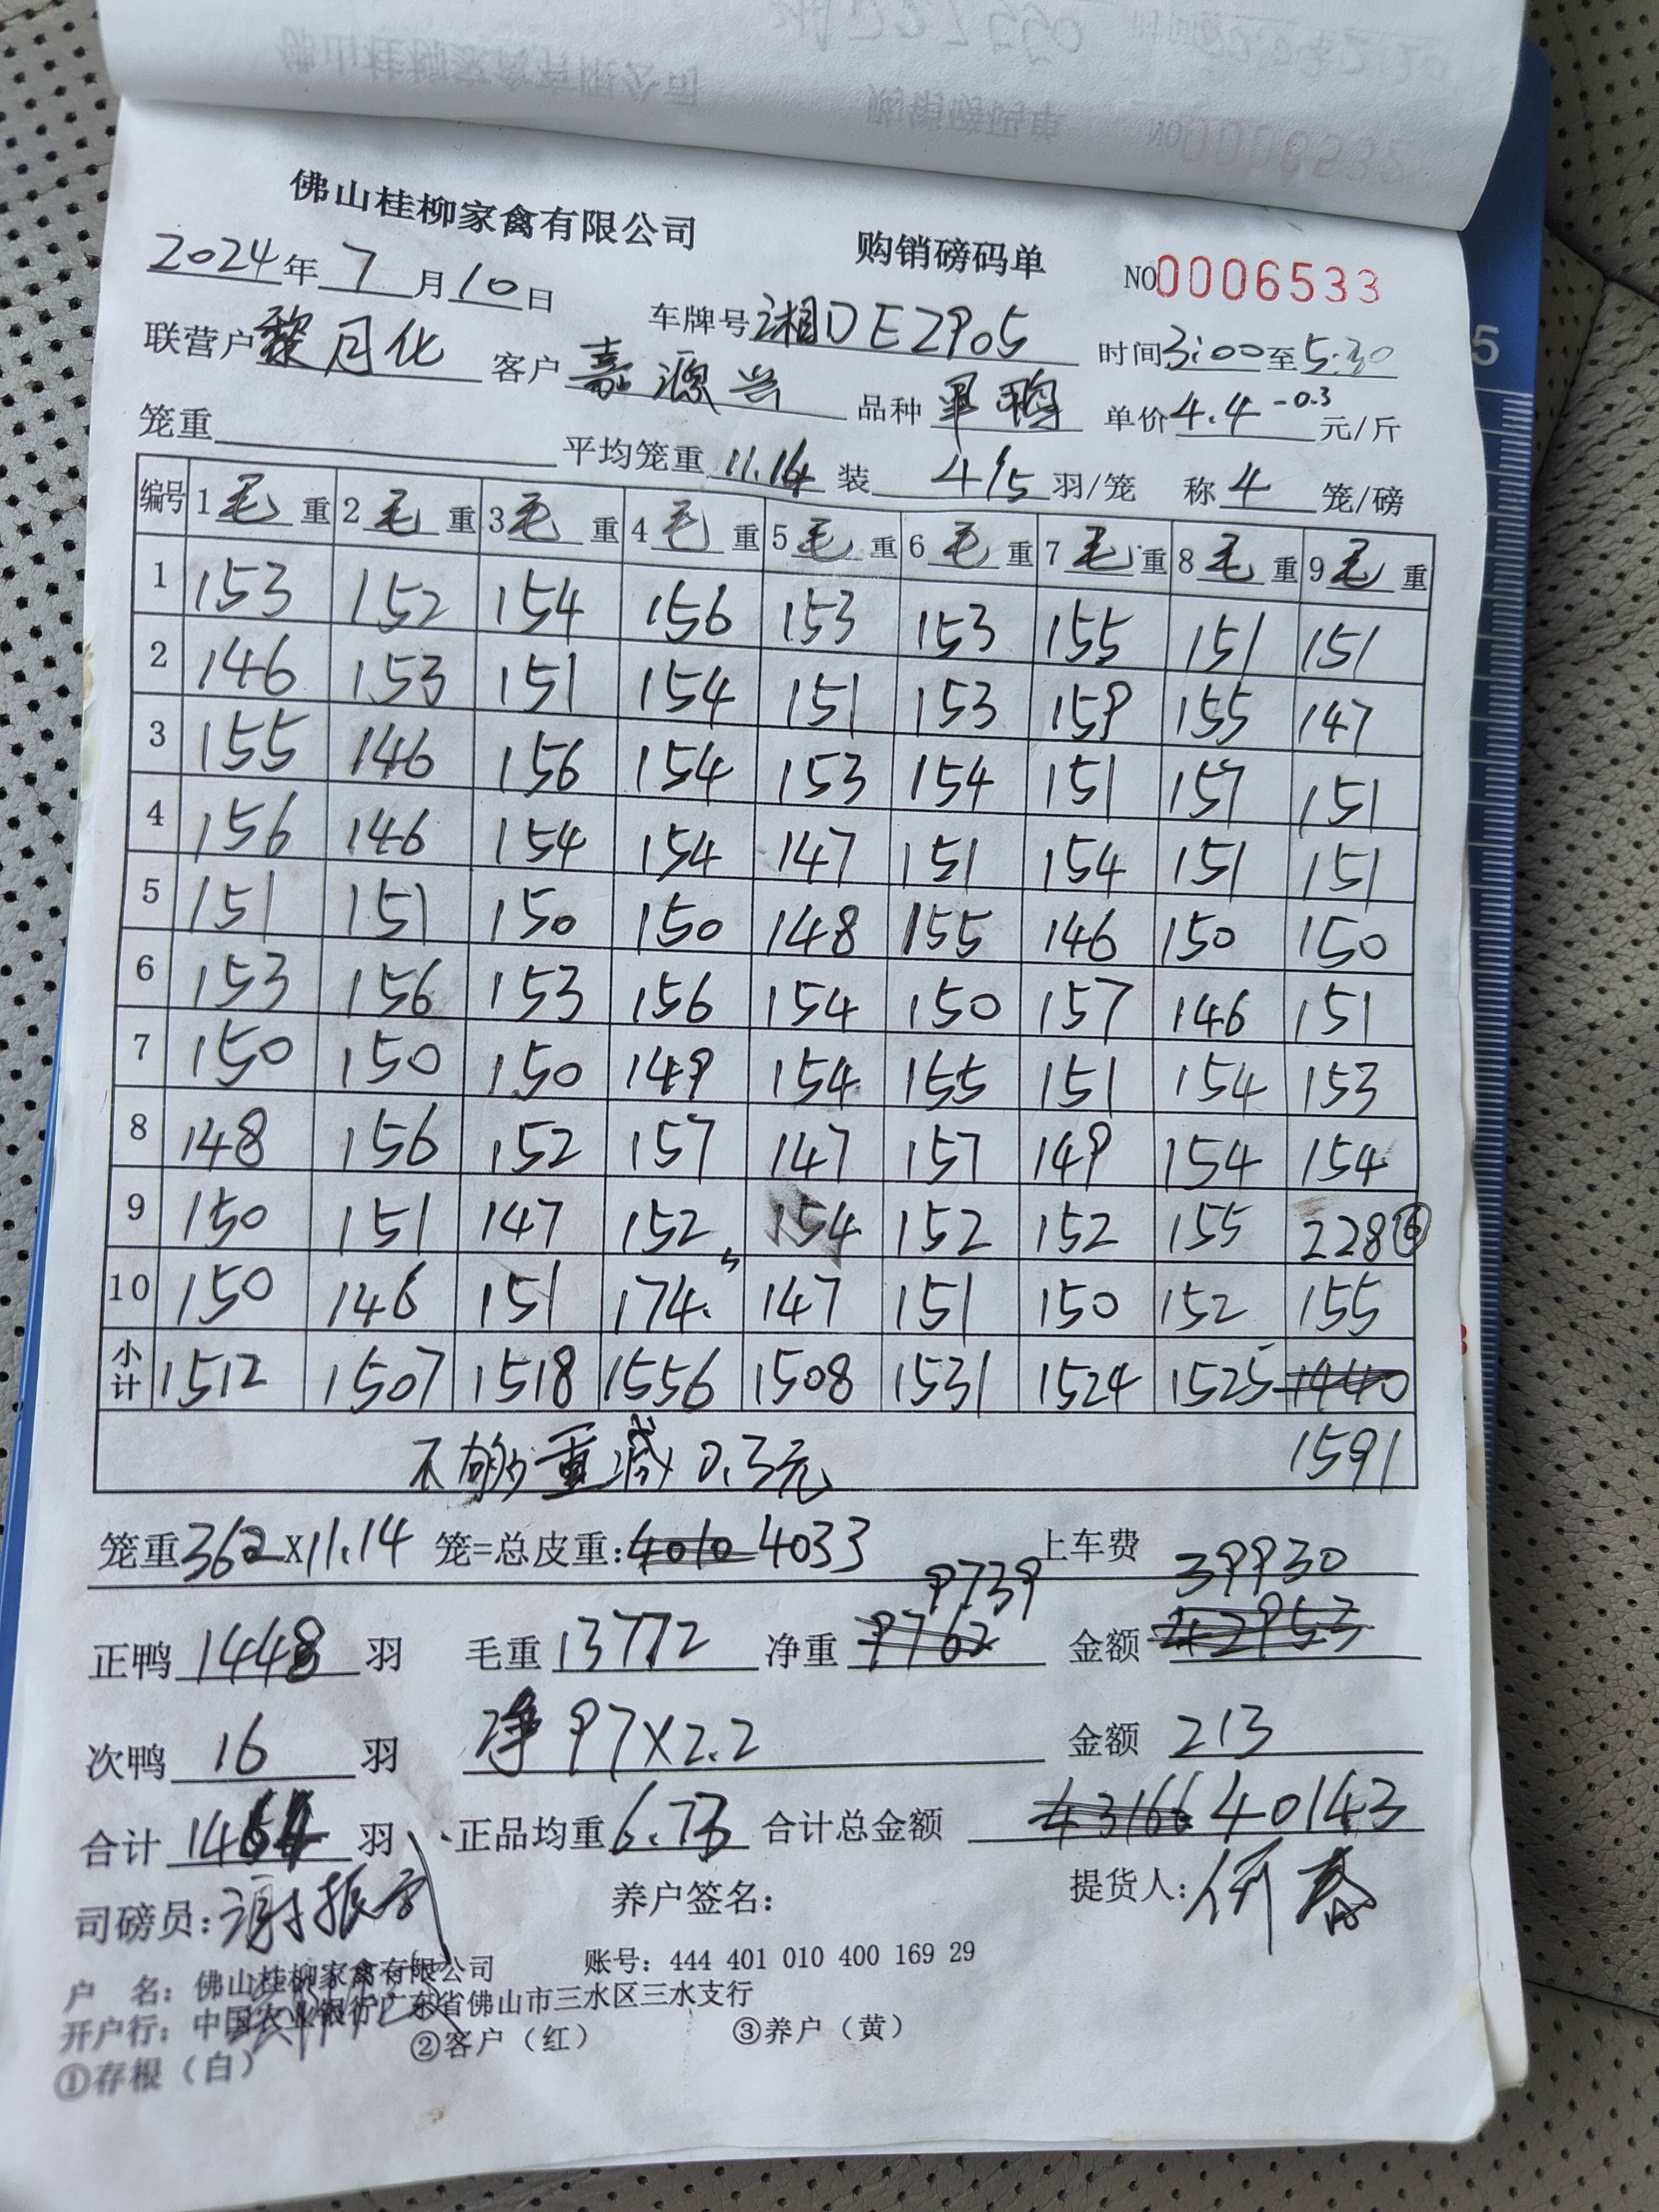 佛山桂柳家禽有限公司 购销磅码单 NO0006533
2024年7月10日 车牌号湘DEZ905 时间3:00至5:30
联营户黎月化 客户嘉源兴 品种鸭 单价4.4-0.3元/斤
笼重 平均笼重11.14装4/5羽/笼 称4笼/磅
编号 1毛重 2毛重 3毛重 4毛重 5毛重 6毛重 7毛重 8毛重 9毛重
1 153 152 154 156 153 153 155 151 151
2 146 153 151 154 151 153 159 155 147
3 155 146 156 154 153 154 151 157 151
4 156 146 154 154 147 151 154 151 151
5 151 151 150 150 148 155 146 150 150
6 153 156 153 156 154 150 157 146 151
7 150 150 150 149 154 155 151 154 153
8 148 156 152 157 147 157 149 154 154
9 150 151 147 152 154 152 152 155 228⑥
10 150 146 151 174 5 147 151 150 152 155
小计 1512 1507 1518 1556 1508 1531 1524 1525 1440
不够重减0.3元 1591
笼重362X11.14笼=总皮重:4010 4033 上车费
9739 39930
正鸭1448羽 毛重13772 净重9762 金额42953
次鸭16羽 净97X2.2 金额213
合计1464羽 正品均重6.73 合计总金额43166 40143
司磅员:谢振 养户签名: 提货人:
户 名:佛山桂柳家禽有限公司 账号:444 401 010 400 169 29
开户行:中国农业银行广东省佛山市三水区三水支行
①存根(白) ②客户(红) ③养户(黄)